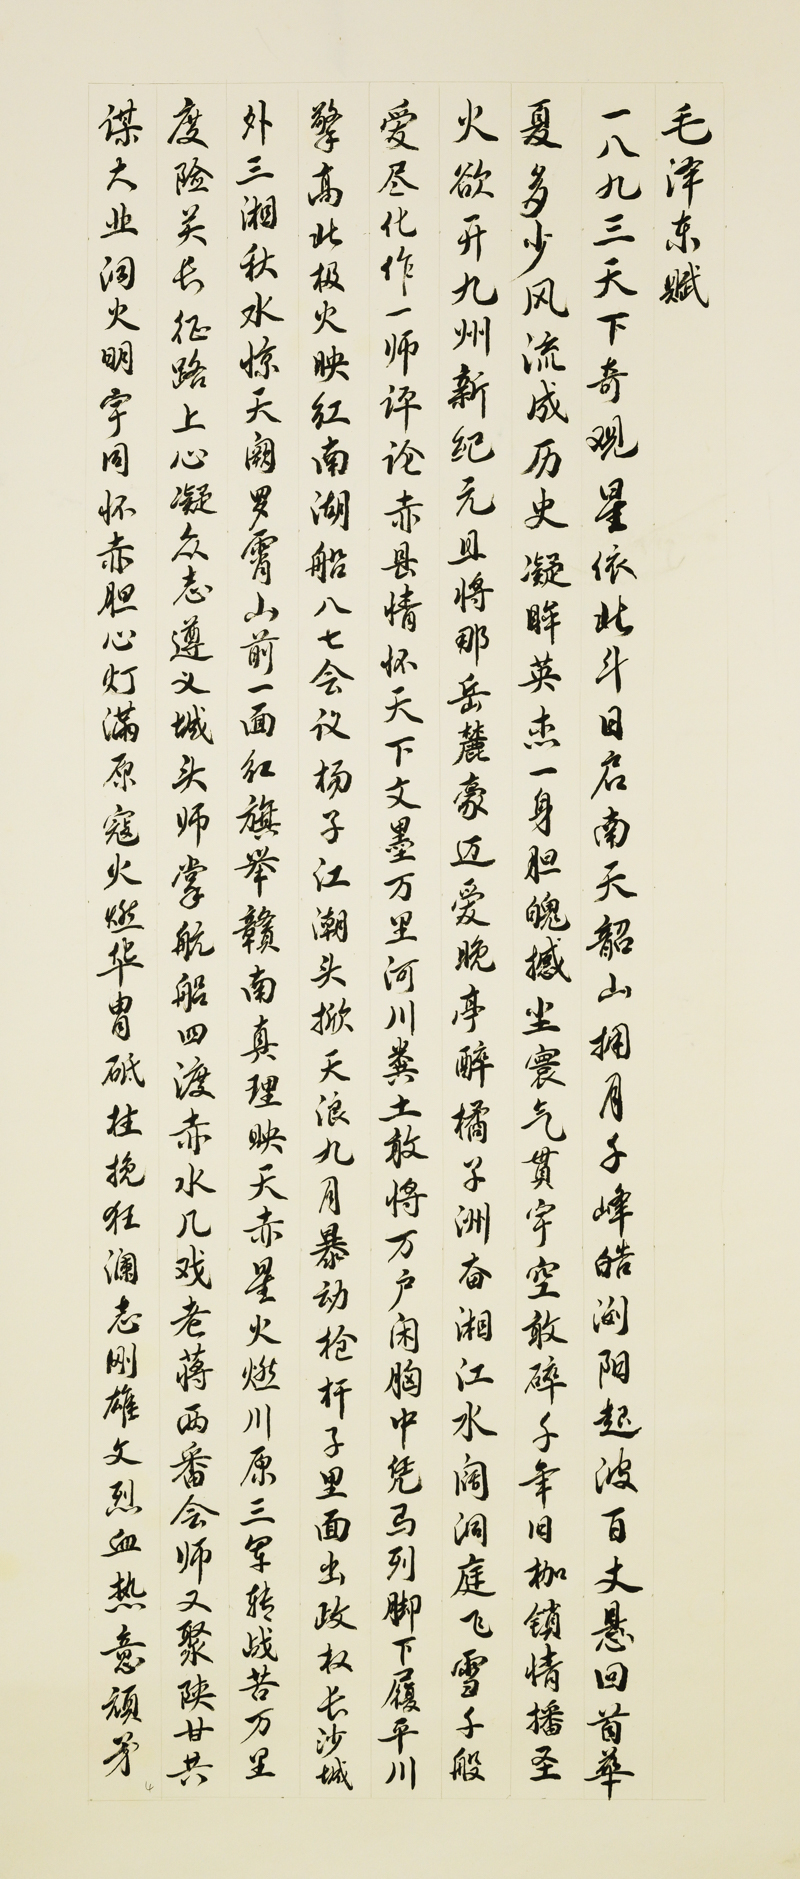 毛泽东赋
一八九三天下奇观星依北斗日启南天韶山拥月千峰皓浏阳起波百丈悬回首华
夏多少风流成历史凝眸英杰一身胆魄撼尘寰气贯宇空敢碎千年旧枷锁情播圣
火欲开九州新纪元且将那岳麓豪迈爱晚亭醉橘子洲奋湘江水阔洞庭飞雪千般
爱尽化作一师评论赤县情怀天下文墨万里河川粪土敢将万户闲胸中凭马列脚下履平川
擎高北极火映红南湖船八七会议杨子江潮头掀天浪九月暴动枪杆子里面出政权长沙城
外三湘秋水惊天阙罗霄山前一面红旗举赣南真理映天赤星火燃川原三军转战苦万里
度险关长征路上心凝众志遵义城头师掌航船四渡赤水几戏老蒋两番会师又聚陕甘共
谋大业洞火明宇同怀赤胆心灯满原寇火燃华胄砥柱挽狂澜志刚雄文烈血热意顽矛